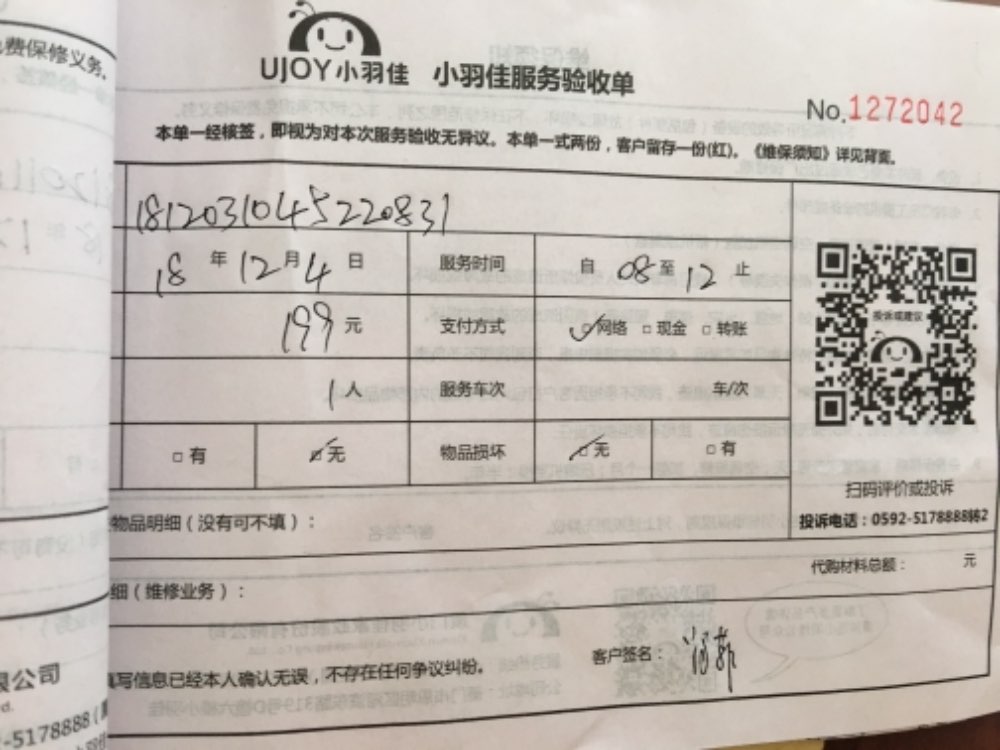 费保修义务。
UJOY小羽佳 小羽佳服务验收单
No.1272042
本单一经核签，即视为对本次服务验收无异议。本单一式两份，客户留存一份(红)。《维保须知》详见背面。
1812031045220831
18 年 12 月 4 日 服务时间 自 08 至 12 止
199 元 支付方式 ☑网络 □现金 □转账
投诉或建议
1人 服务车次 车/次
□有 ☑无 物品损坏 ☑无 □有
扫码评价或投诉
物品明细（没有可不填）：
投诉电话：0592-5178888转2
代购材料总额： 元
细（维修业务）：
填写信息已经本人确认无误，不存在任何争议纠纷。
客户签名：
限公司
-5178888